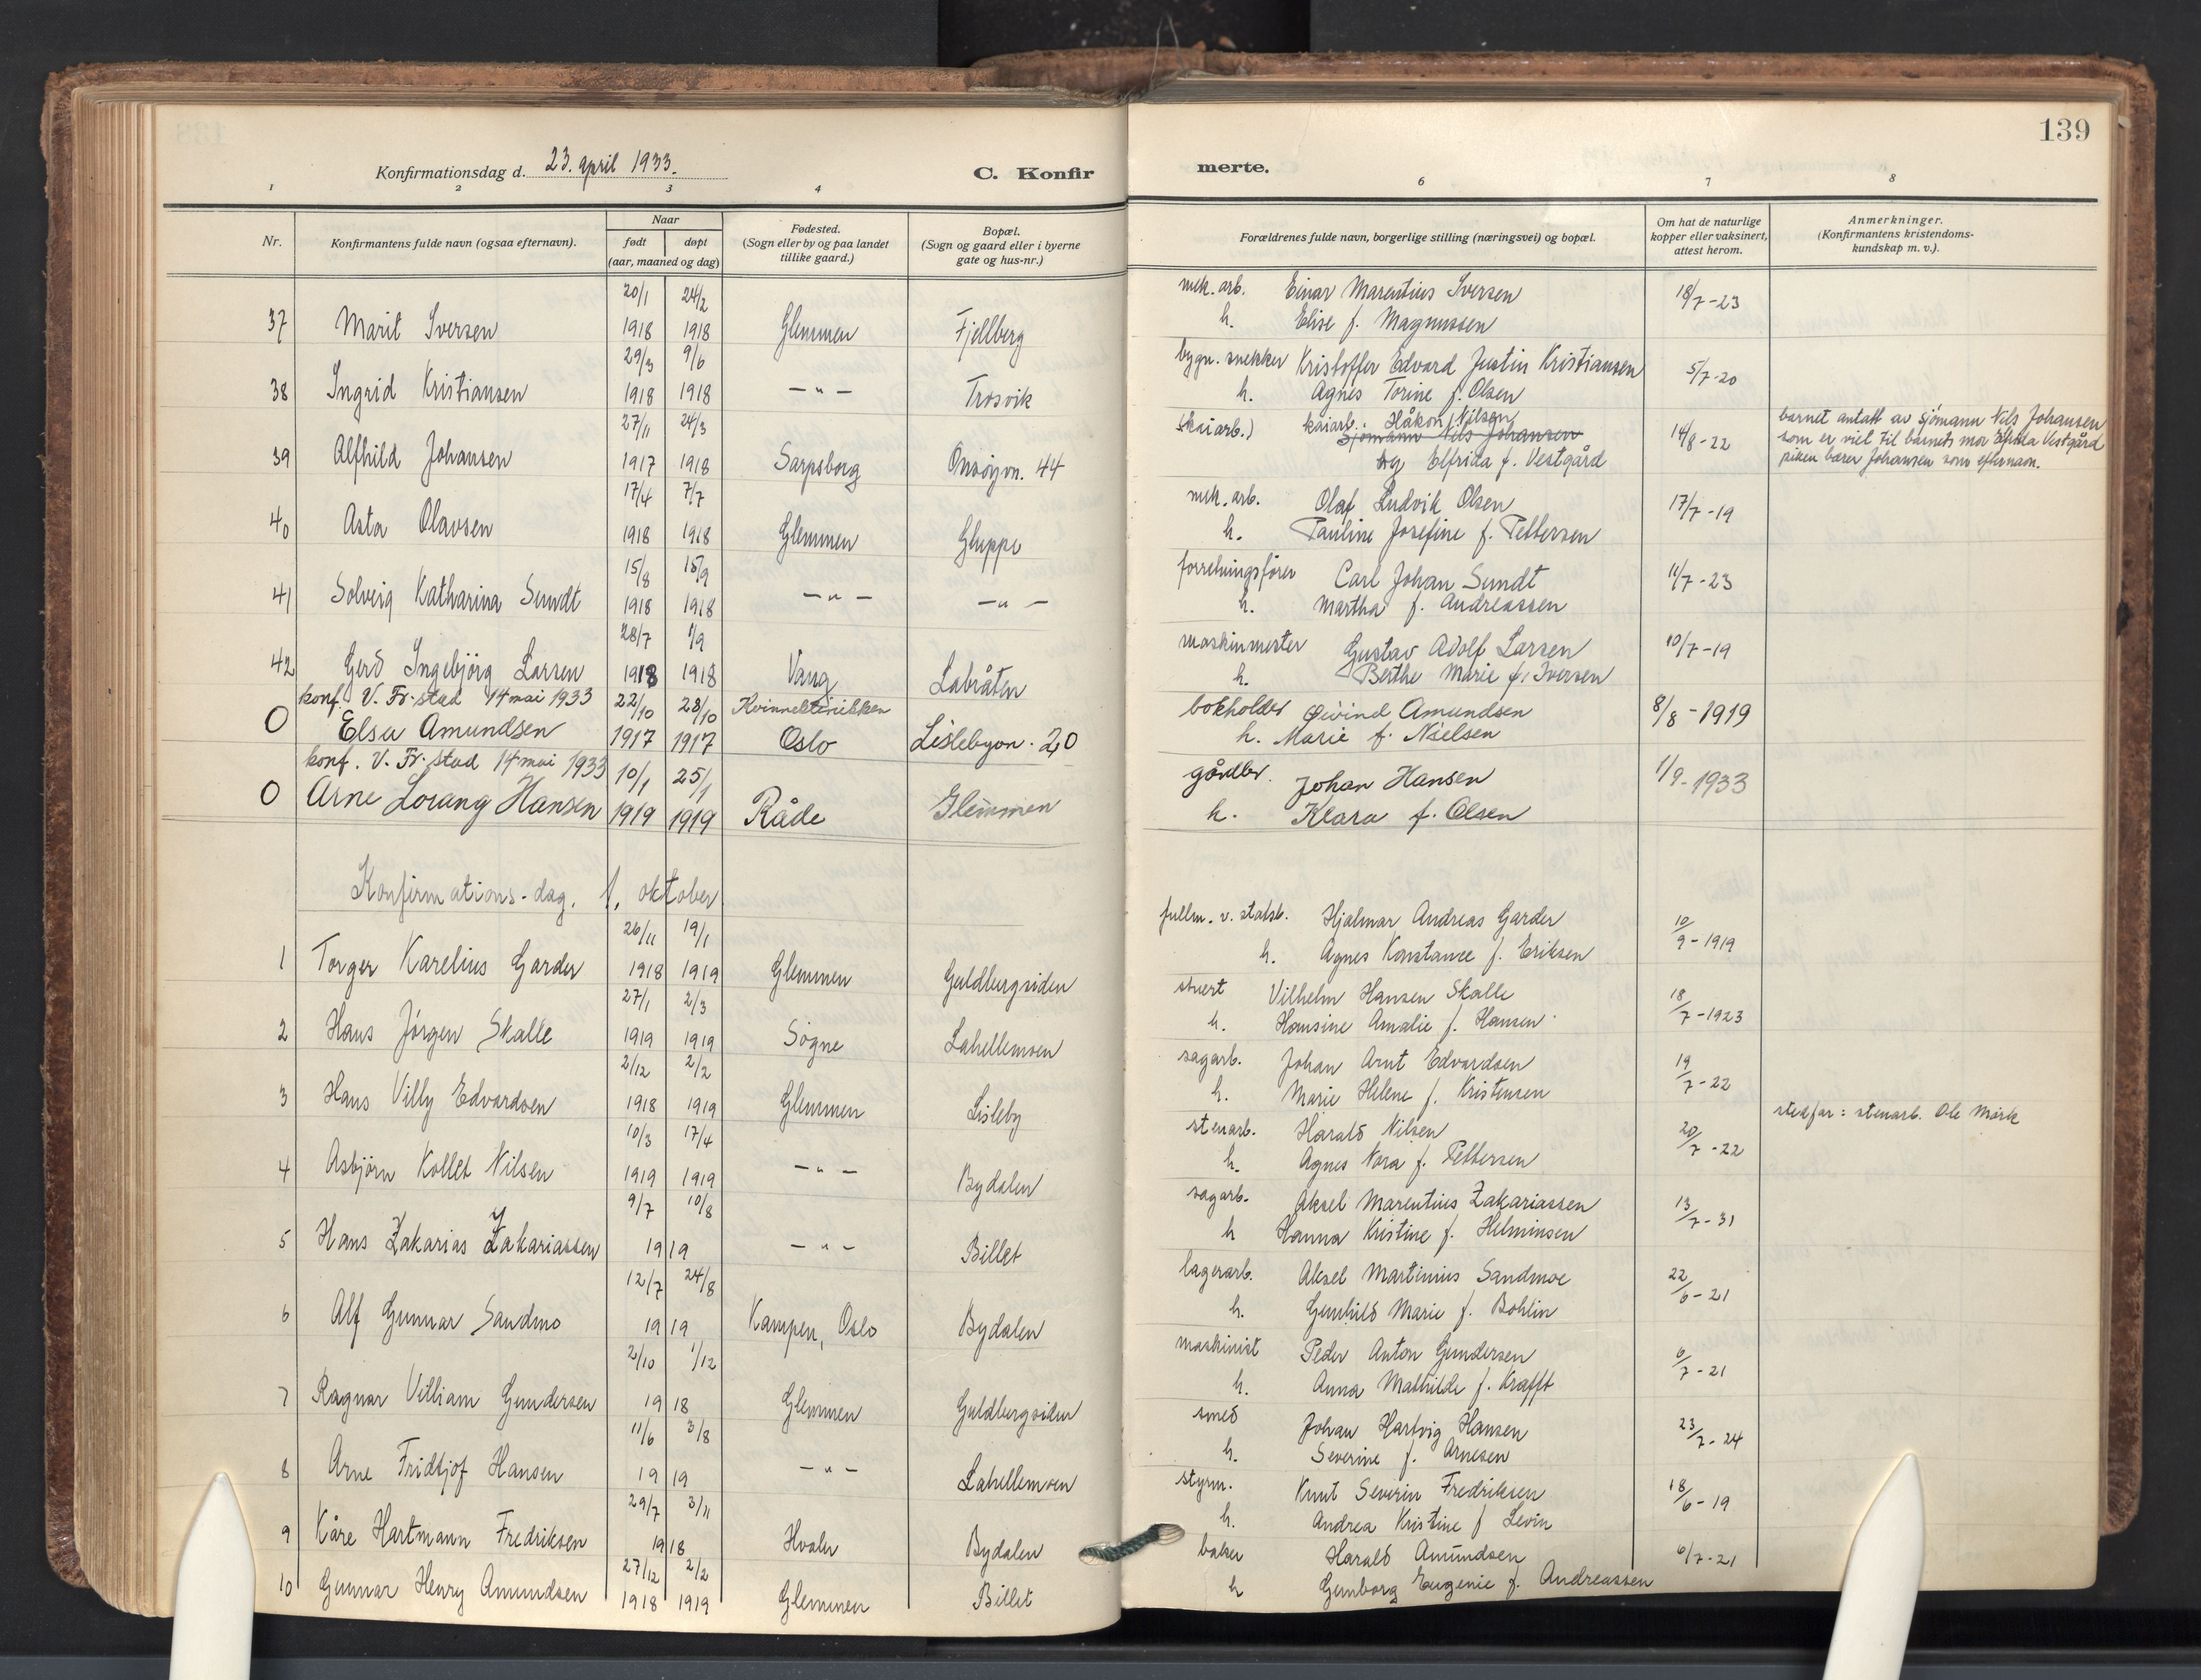 139
Konfirmationsdag d. 23. april 1933.
C. Konfir
merte.
1 2 3 4 6 7 8
Nr.
Konfirmantens fulde navn (ogsaa efternavn).
Naar
født døpt
(aar, maaned og dag)
Fødested.
(Sogn eller by og paa landet
tillike gaard.)
Bopæl.
(Sogn og gaard eller i byerne
gate og hus-nr.)
Forældrenes fulde navn, borgerlige stilling (næringsvei) og bopæl.
Om hat de naturlige
kopper eller vaksinert,
attest herom.
Anmerkninger.
(Konfirmantens kristendoms-
kundskap m. v.).
20/1 24/2 mek. arb. Einar Marentius Iversen 18/7-23
37 Marit Iversen 1918 1918 Glemmen Fjellberg h. Elise f. Magnussen
29/3 9/6 bygn. snekker Kristoffer Edvard Justin Kristiansen 5/7-20
38 Ingrid Kristiansen 1918 1918 —"— Trosvik h. Agnes Torine f. Olsen
27/11 24/3 (kaiarb.) kaiarb. Håkon Nilsen 14/8-22 barnet antatt av sjömann Nils Johansen
sjömann Nils Johansen som er viet til barnets mor Elfrida Vestgård
39 Alfhild Johansen 1917 1918 Sarpsborg Onsöyvn. 44 og Elfrida f. Vestgård piken bærer Johansen som efternavn.
17/4 7/7 mek. arb. Olaf Ludvik Olsen 17/7-19
40 Asta Olavsen 1918 1918 Glemmen Gluppe h. Pauline Josefine f. Pettersen
15/8 15/9 forretningsfører Carl Johan Sundt 11/7-23
41 Solveig Katharina Sundt 1918 1918 —"— —"— h. Martha f. Andreassen
28/7 1/9 maskinmester Gustav Adolf Larsen 10/7-19
42 Gerd Ingebjörg Larsen 1918 1918 Vang Labråten h. Berthe Marie f. Iversen
konf. V. Fr.stad 14 mai 1933 22/10 28/10 Kvinneklinikken bokholder Øivind Amundsen 8/8-1919
O Elsa Amundsen 1917 1917 Oslo Lislebyvn. 20 h. Marie f. Nielsen
konf. V. Fr.stad 14 mai 1933 10/1 25/1 gårdbr. Johan Hansen 1/9-1933
O Arne Lorang Hansen 1919 1919 Råde Glemmen h. Klara f. Olsen
Konfirmations-dag. 1. oktober
26/11 19/1 fullm. v. statsb. Hjalmar Andreas Garder 10/9-1919
1 Torger Karelius Garder 1918 1919 Glemmen Guldbergsiden h. Agnes Konstance f. Eriksen
27/1 2/3 stuert Vilhelm Hansen Skalle 18/7-1923
2 Hans Jörgen Skalle 1919 1919 Sögne Lahellemoen h. Hansine Amalie f. Hansen
2/12 2/2 sagarb. Johan Arnt Edvardsen 19/7-22
3 Hans Villy Edvardsen 1918 1919 Glemmen Lisleby h. Marie Helene f. Kristensen
10/3 17/4 stenarb. Harald Nilsen 20/7-22 stedfar: stenarb. Ole Mörk
4 Asbjörn Kollet Nilsen 1919 1919 —"— Bydalen h. Agnes Nora f. Pettersen
9/7 10/8 sagarb. Aksel Marentius Zakariassen 13/7-31
5 Hans Zakarias Zakariassen 1919 —"— Billet h Hanna Kristine f. Helminsen
12/7 24/8 lagerarb. Aksel Martinius Sandmoe 22/6-21
6 Alf Gunnar Sandmo 1919 Kampen, Oslo Bydalen h. Gunhild Marie f. Bohlin
2/10 1/12 maskinist Peder Anton Gundersen 6/7-21
7 Ragnar Villiam Gundersen 1918 Glemmen Guldbergsiden h. Anna Mathilde f. Krafft
11/6 3/8 smed Johan Hartvig Hansen 23/7-24
8 Arne Fridtjof Hansen 1919 —"— Lahellemoen h. Severine f. Arnesen
29/7 3/11 styrm. Knut Severin Fredriksen 18/6-19
9 Kåre Hartmann Fredriksen 1918 Hvaler Bydalen h. Andrea Kristine f Levin
27/12 2/2 baker Harald Amundsen 6/7-21
10 Gunnar Henry Amundsen 1918 1919 Glemmen Billet h Gunborg Eugenie f. Andreassen